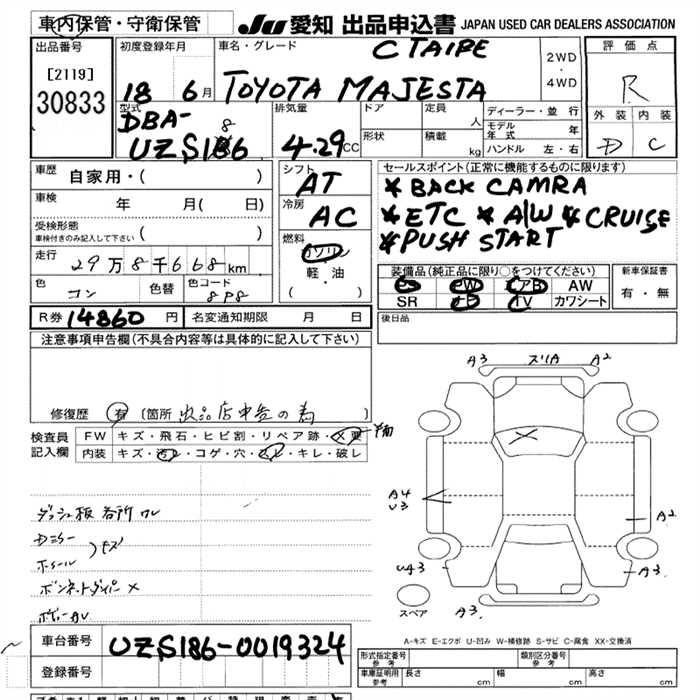 車内保管・守衛保管
JU 愛知 出品申込書 JAPAN USED CAR DEALERS ASSOCIATION
出品番号
[2119]
30833
初度登録年月
18 6月
車名・グレード
C TAIPE
TOYOTA MAJESTA
2WD
・
4WD
評価点
R
外装 内装
D C
型式
DBA-
UZS186
8
排気量
4.29CC
ドア
形状
定員
人
積載
kg
ディーラー・並行
モデル
年式 年
ハンドル 左・右
車歴 自家用・( )
車検 年 月( 日)
受検形態
車検付きのみ記入して下さい ( )
走行 29万8千668km
色 コン 色替 色コード 8P8
シフト
AT
冷房
AC
燃料
ガソリン
軽・油
( ・ )
セールスポイント(正常に機能するものに限ります)
* BACK CAMRA
* ETC * A/W * CRUISE
* PUSH START
装備品(純正品に限り○をつけてください)
PS PW エアB AW
SR TV カワシート
新車保証書
有・無
R券 14860円 名変通知期限 月 日
後日品
注意事項申告欄(不具合内容等は具体的に記入して下さい)
修復歴 有 [箇所 出品店申告の為 ]
検査員
記入欄
FW キズ・飛石・ヒビ割・リペア跡・X要
内装 キズ・汚レ・コゲ・穴・スレ・キレ・破レ
ダッシュ板
A3 A2
A4
U3
A2
A3
A3
スペア
A-キズ E-エクボ U-凹み W-補修跡 S-サビ C-腐食 XX-交換済
車台番号 UZS186-0019324
登録番号
形式指定番号
参考
類別区分番号
参考
車庫証明用
参考
長さ cm 幅 cm 高さ cm